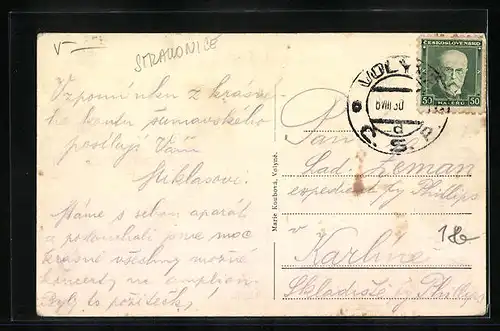 V
STRAKONICE
Vzpomínku z krásné-
ho koutu šumavského
posílají Vám
Miklasovi.
Máme s sebou aparát
a poslouchali jsme moc
krásné všechny možné
koncerty na amplion.
Byl to požitek!
Marie Koubová, Volyně.
ČESKOSLOVENSKO
50 HALÉŘŮ 50
VOLYNĚ
6 VIII 30
d
Č.S.R.
Pan
Lad. Zeman
expedient fy Phillips
v
Karlíně
Skladiště fy Phillips
18